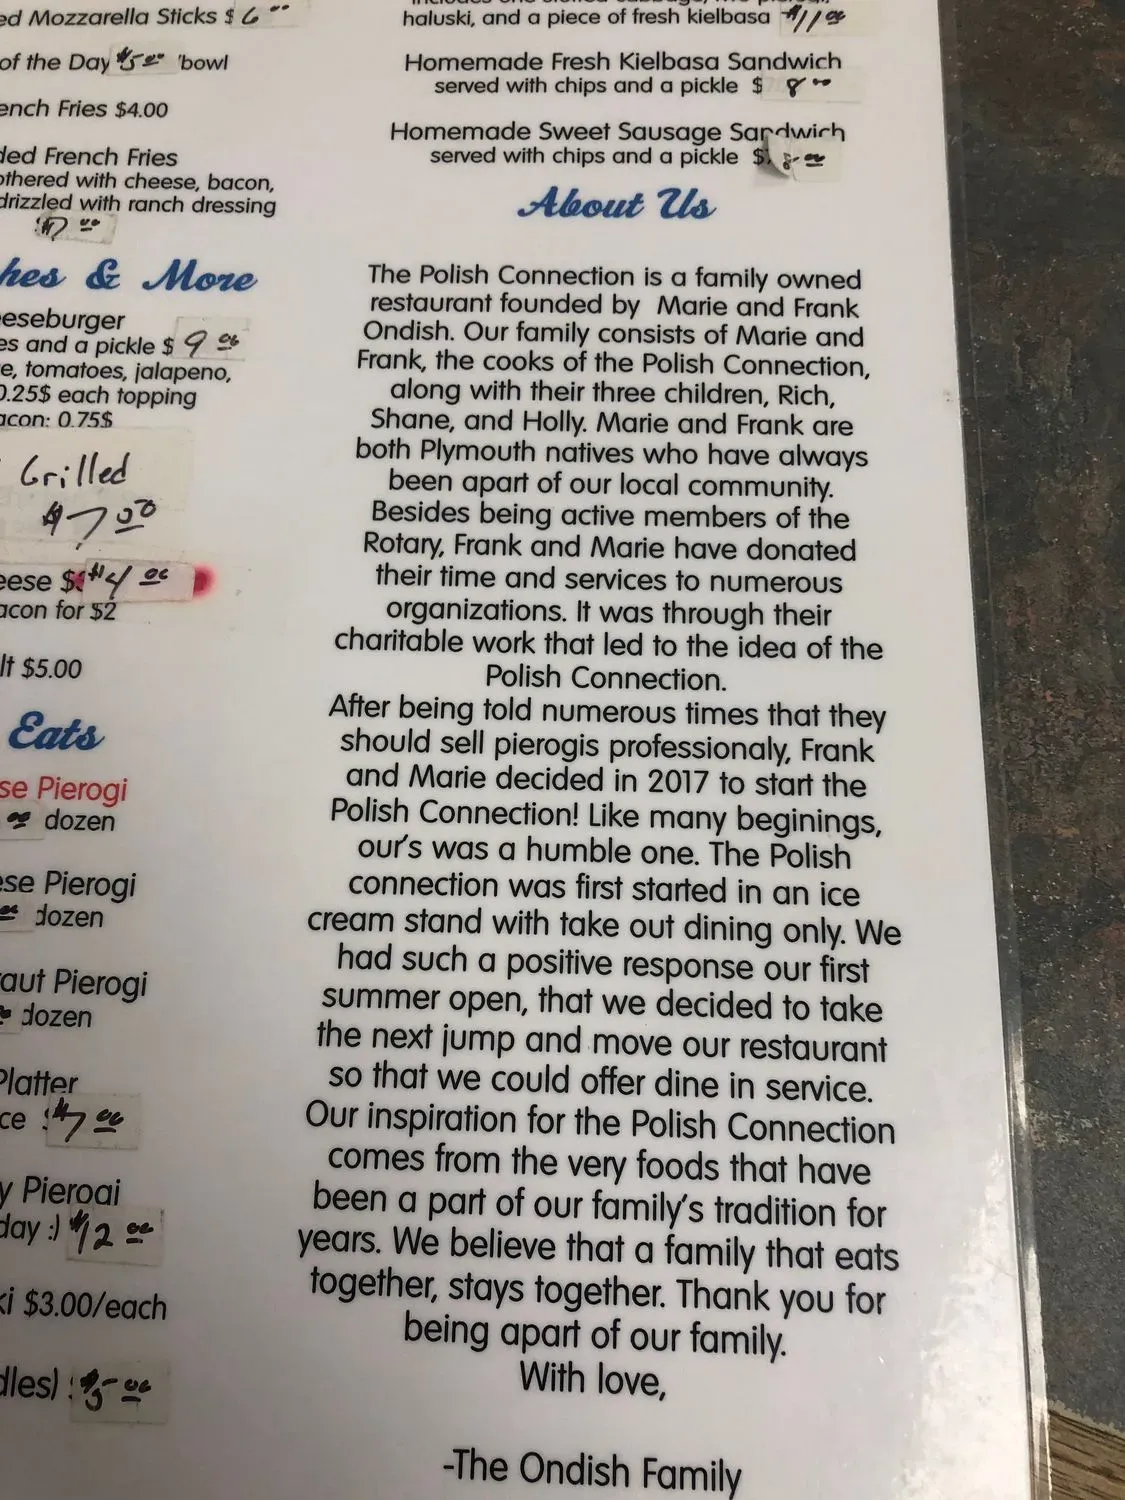 ed Mozzarella Sticks $ 6 00
of the Day $5 00 'bowl
ench Fries $4.00
ded French Fries
othered with cheese, bacon,
drizzled with ranch dressing
$7 00
hes & More
eeseburger
es and a pickle $ 9 00
e, tomatoes, jalapeno,
0.25$ each topping
acon: 0.75$
Grilled
$7 00
eese $ $4 00
acon for $2
lt $5.00
Eats
se Pierogi
00 dozen
ese Pierogi
00 dozen
raut Pierogi
dozen
Platter
ce $7 00
y Pierogi
day :) $12 00
ki $3.00/each
dles) $5 00
haluski, and a piece of fresh kielbasa $11 00
Homemade Fresh Kielbasa Sandwich
served with chips and a pickle $ 8 00
Homemade Sweet Sausage Sandwich
served with chips and a pickle $ 8 00
About Us
The Polish Connection is a family owned
restaurant founded by Marie and Frank
Ondish. Our family consists of Marie and
Frank, the cooks of the Polish Connection,
along with their three children, Rich,
Shane, and Holly. Marie and Frank are
both Plymouth natives who have always
been apart of our local community.
Besides being active members of the
Rotary, Frank and Marie have donated
their time and services to numerous
organizations. It was through their
charitable work that led to the idea of the
Polish Connection.
After being told numerous times that they
should sell pierogis professionaly, Frank
and Marie decided in 2017 to start the
Polish Connection! Like many beginings,
our's was a humble one. The Polish
connection was first started in an ice
cream stand with take out dining only. We
had such a positive response our first
summer open, that we decided to take
the next jump and move our restaurant
so that we could offer dine in service.
Our inspiration for the Polish Connection
comes from the very foods that have
been a part of our family's tradition for
years. We believe that a family that eats
together, stays together. Thank you for
being apart of our family.
With love,
-The Ondish Family